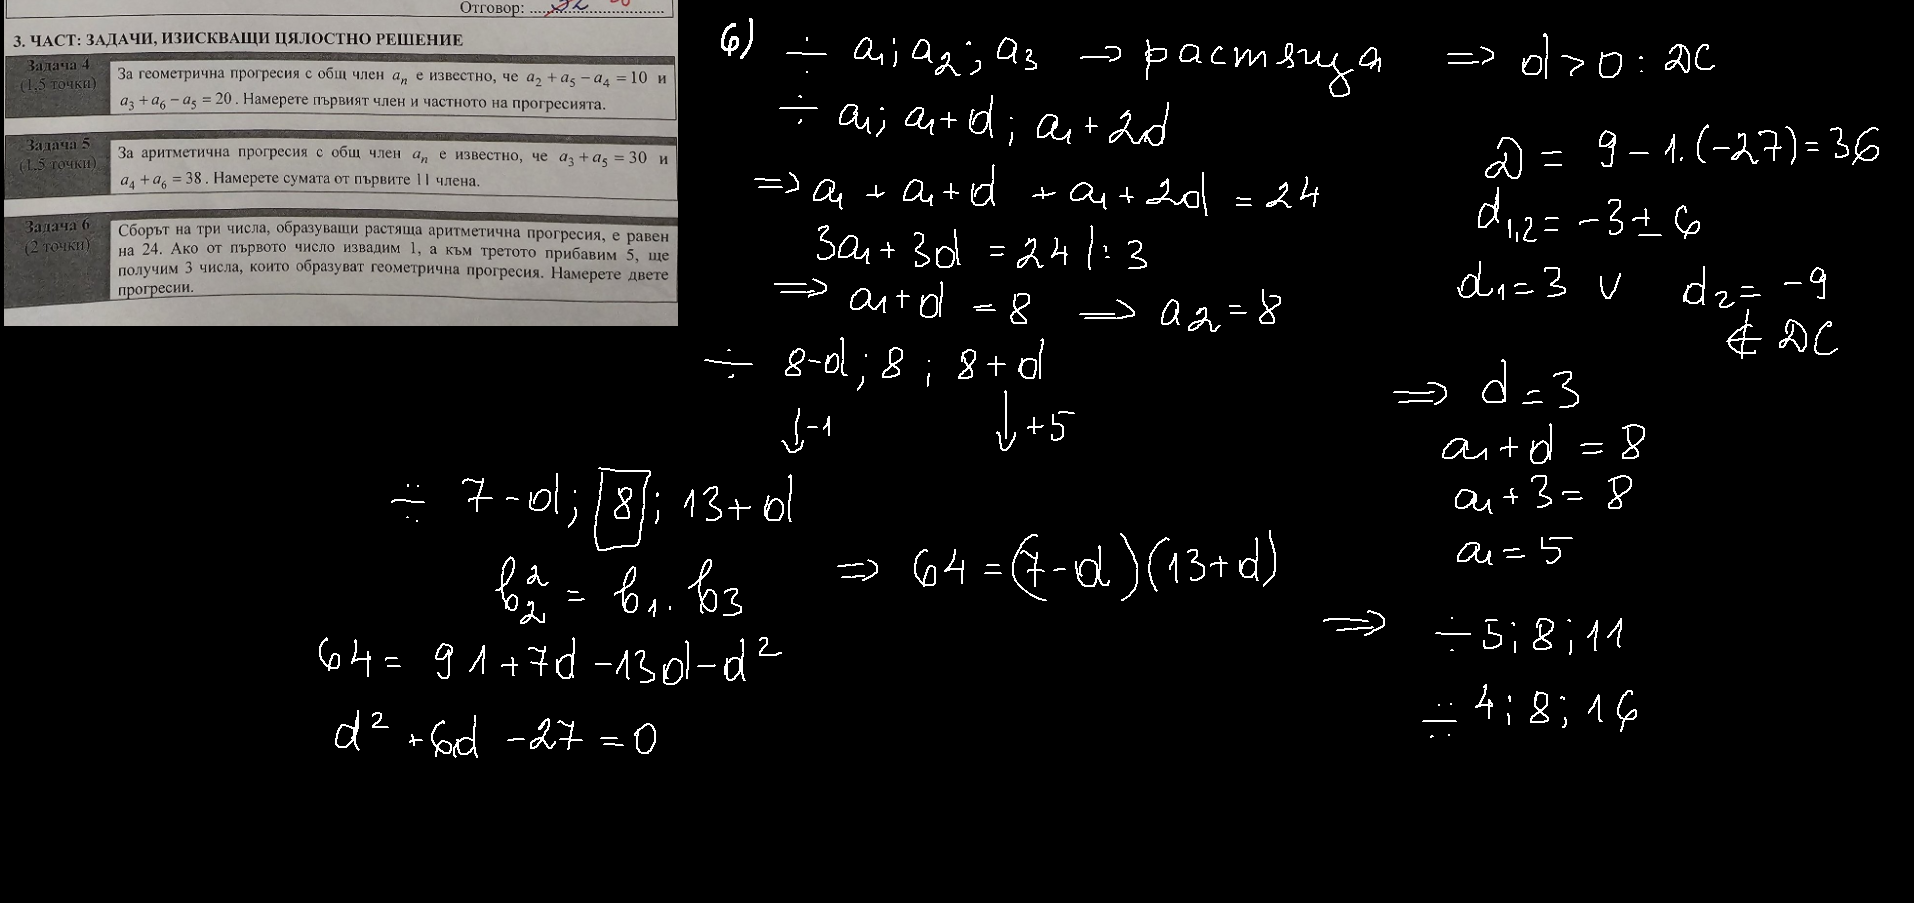 Отговор: ..............................
3. ЧАСТ: ЗАДАЧИ, ИЗИСКВАЩИ ЦЯЛОСТНО РЕШЕНИЕ
Задача 4
(1,5 точки)
За геометрична прогресия с общ член aₙ е известно, че a₂ + a₅ − a₄ = 10 и
a₃ + a₆ − a₅ = 20. Намерете първият член и частното на прогресията.
Задача 5
(1,5 точки)
За аритметична прогресия с общ член aₙ е известно, че a₃ + a₅ = 30 и
a₄ + a₆ = 38. Намерете сумата от първите 11 члена.
Задача 6
(2 точки)
Сборът на три числа, образуващи растяща аритметична прогресия, е равен
на 24. Ако от първото число извадим 1, а към третото прибавим 5, ще
получим 3 числа, които образуват геометрична прогресия. Намерете двете
прогресии.
6) ÷ a₁; a₂; a₃ → растяща ⇒ d > 0 : ДС
÷ a₁; a₁+d; a₁+2d
⇒ a₁ + a₁+d + a₁+2d = 24
3a₁ + 3d = 24 /:3
⇒ a₁+d = 8 ⇒ a₂ = 8
÷ 8-d; 8; 8+d
↓-1 ↓+5
÷ 7-d; 8; 13+d
b₂² = b₁. b₃ ⇒ 64 = (7-d)(13+d)
64 = 91+7d-13d-d²
d² + 6d - 27 = 0
D = 9-1.(-27) = 36
d₁,₂ = -3 ± 6
d₁ = 3 v d₂ = -9
∉ ДС
⇒ d = 3
a₁+d = 8
a₁+3 = 8
a₁ = 5
⇒ ÷ 5; 8; 11
÷ 4; 8; 16